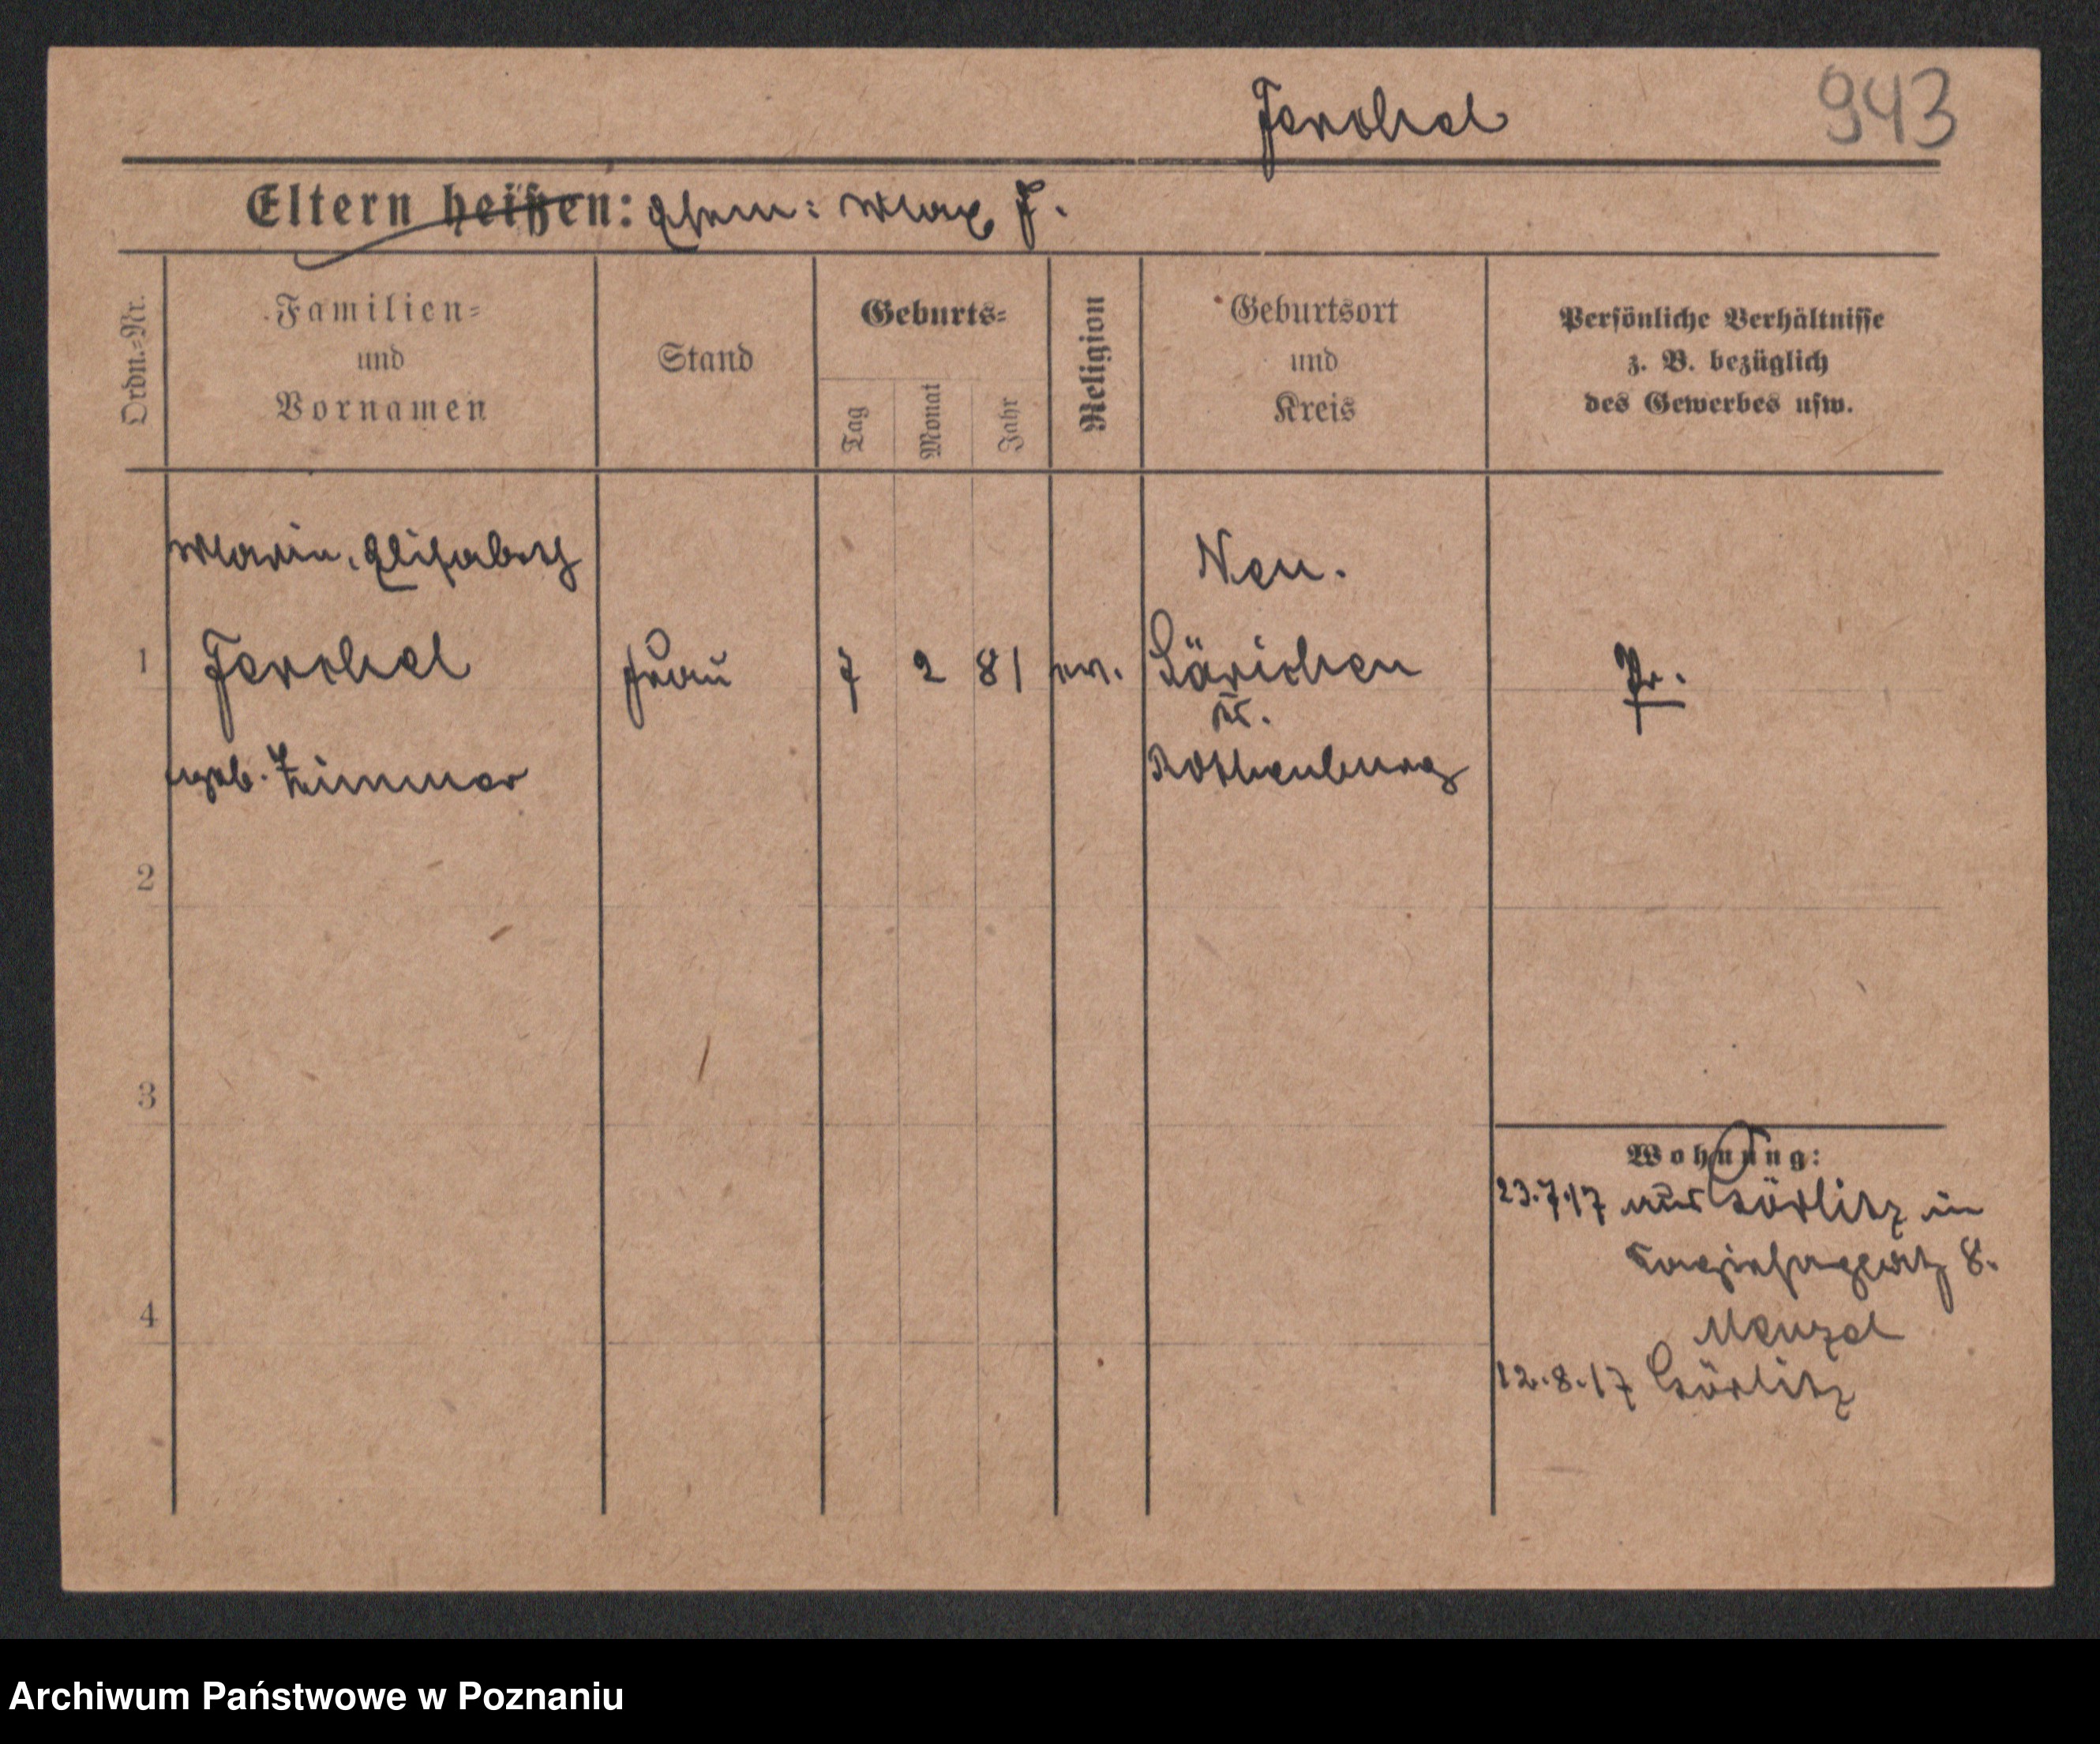 Jerchel 943
Eltern heißen: Ehem: Max J.
Ordn.-Nr.
Familien-
und
Vornamen
Stand
Geburts-
Tag
Monat
Jahr
Religion
Geburtsort
und
Kreis
Persönliche Verhältnisse
z. B. bezüglich
des Gewerbes usw.
Marie, Elisabeth
Neu.
1 Jerchel Frau 7 2 81 ev. Särichen Pr.
Kr.
geb. Zimmer Rothenburg
2
3
Wohnung:
23.7.17 aus Görlitz in
8.
4
Menzel
12.8.17 Görlitz
Archiwum Państwowe w Poznaniu